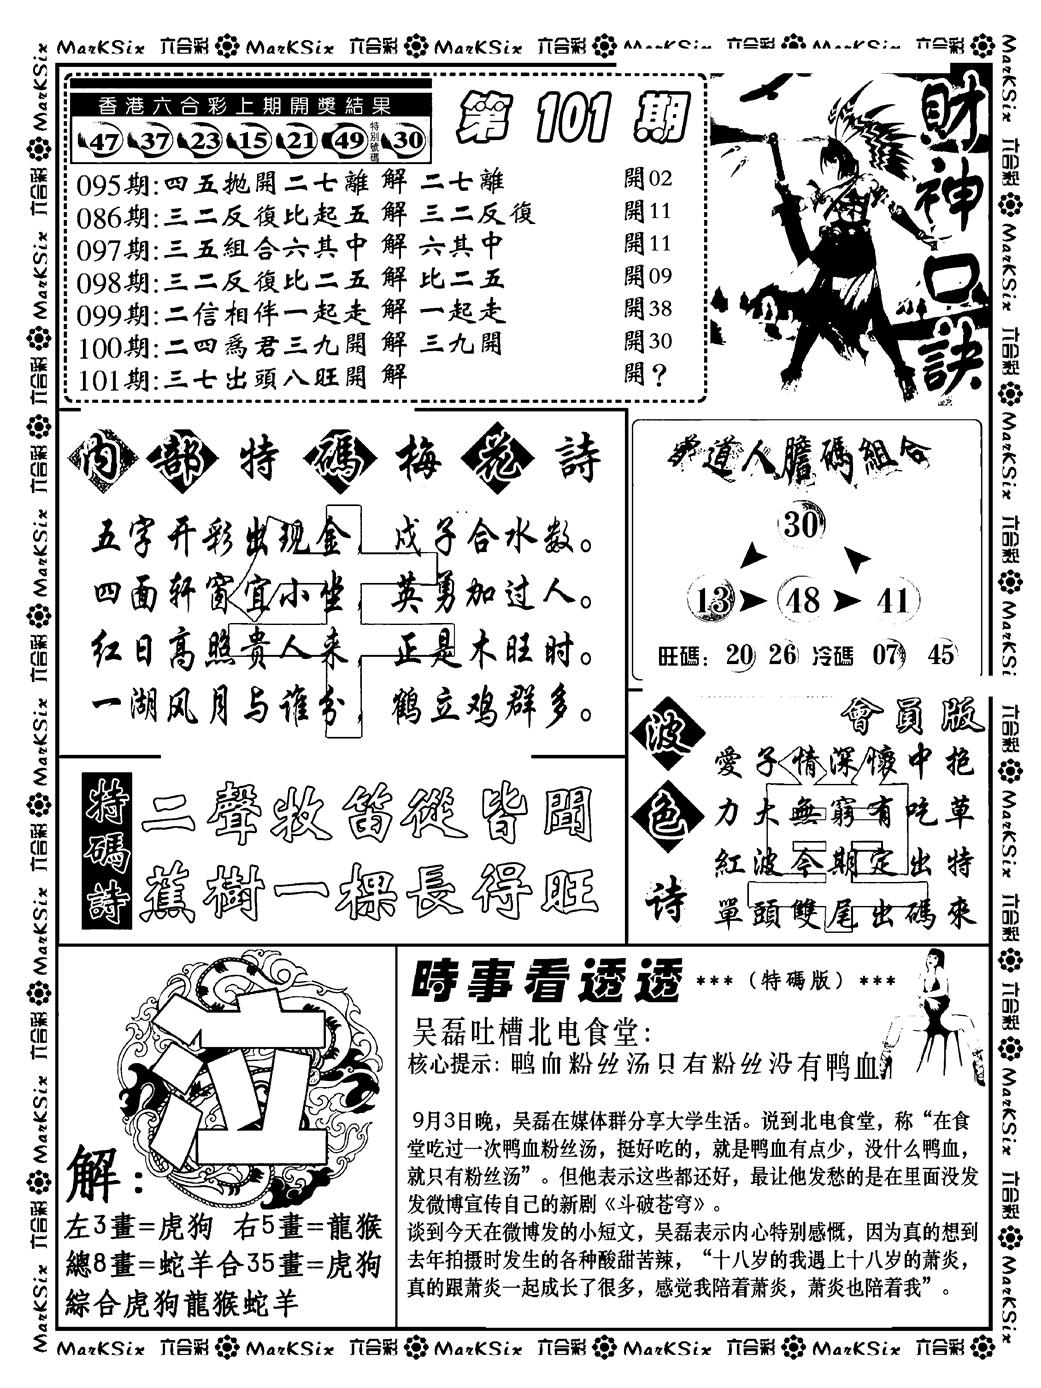 MarKSix 六合彩 MarKSix 六合彩 MarKSix 六合彩 MarKSix 六合彩 MarKSix 六合彩
香港六合彩上期開獎結果
47 37 23 15 21 49 特別號碼 30
第 101 期
095期:四五拋開二七離 解 二七離 開02
086期:三二反復比起五 解 三二反復 開11
097期:三五組合六其中 解 六其中 開11
098期:三二反復比二五 解 比二五 開09
099期:二信相伴一起走 解 一起走 開38
100期:二四爲君三九開 解 三九開 開30
101期:三七出頭八旺開 解 開?
財神口訣
內部特碼梅花詩
五字开彩出现金,戊子合水数。
四面轩窗宜小坐,英勇加过人。
红日高照贵人来,正是木旺时。
一湖风月与谁分,鹤立鸡群多。
道人膽碼組合
30
13 48 41
旺碼: 20 26 冷碼 07 45
特碼詩
二聲牧笛從皆聞
蕉樹一棵長得旺
波色诗
會員版
愛子情深懷中抱
力大無窮有吃草
紅波今期定出特
單頭雙尾出碼來
解:
左3畫=虎狗 右5畫=龍猴
總8畫=蛇羊合35畫=虎狗
綜合虎狗龍猴蛇羊
時事看透透 ***(特碼版)***
吴磊吐槽北电食堂:
核心提示: 鸭血粉丝汤只有粉丝没有鸭血
9月3日晚，吴磊在媒体群分享大学生活。说到北电食堂，称“在食
堂吃过一次鸭血粉丝汤，挺好吃的，就是鸭血有点少，没什么鸭血，
就只有粉丝汤”。但他表示这些都还好，最让他发愁的是在里面没发
发微博宣传自己的新剧《斗破苍穹》。
谈到今天在微博发的小短文，吴磊表示内心特别感慨，因为真的想到
去年拍摄时发生的各种酸甜苦辣，“十八岁的我遇上十八岁的萧炎，
真的跟萧炎一起成长了很多，感觉我陪着萧炎，萧炎也陪着我”。
MarKSix 六合彩 MarKSix 六合彩 MarKSix 六合彩 MarKSix 六合彩 MarKSix 六合彩